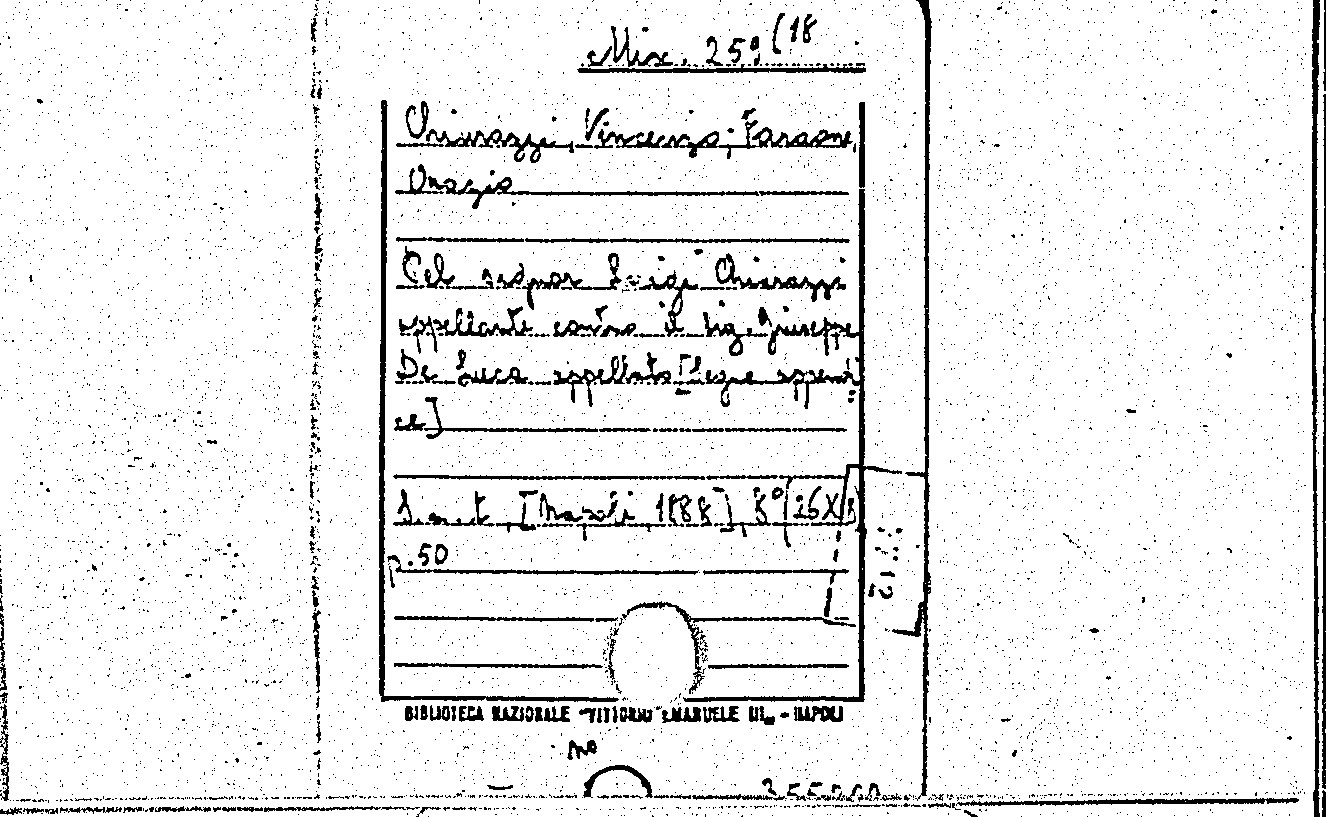 Misc. 259(18
Chiurazzi, Vincenzo; Faraone,
Orazio
Pel signor Luigi Chiurazzi
appellante contro il sig. Giuseppe
De Luca appellato [Segue appendi
ce]
S.n.t., [Napoli, 1888], 8° (26X
p.50
BIBLIOTECA NAZIONALE "VITTORIO EMANUELE III" - NAPOLI